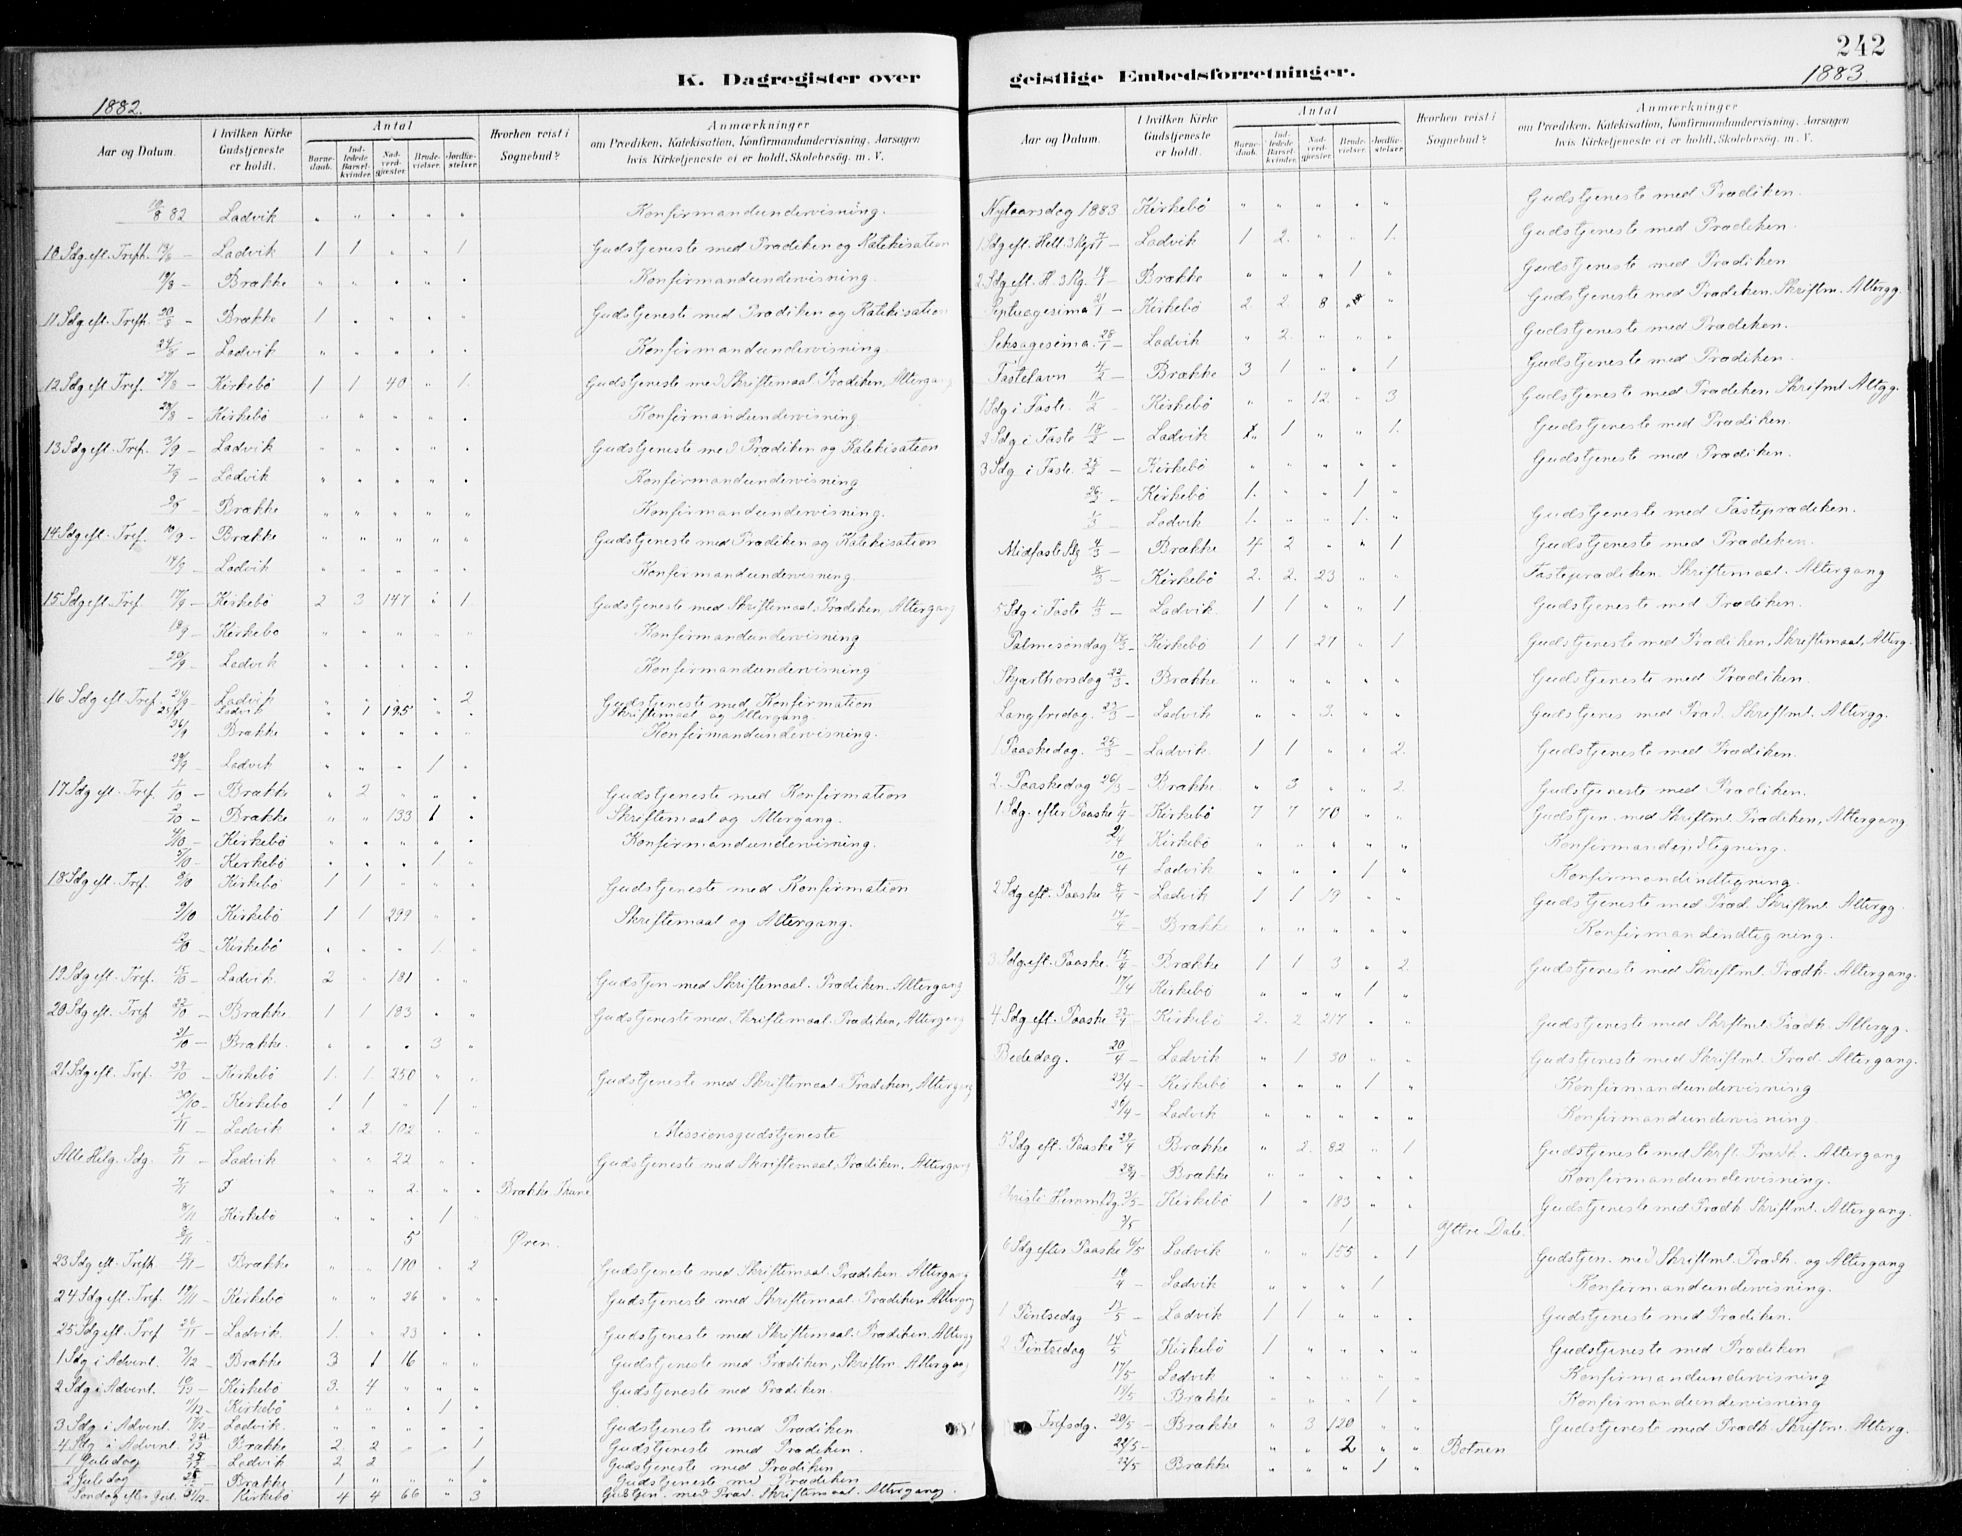 242
K. Dagregister over geistlige Embedsforretninger.
1882.
1883.
Aar og Datum. | I hvilken Kirke Gudstjeneste er holdt. | Antal | Barne-daab. | Ind-ledede Barsel-kvinder. | Nad-verd-gjester. | Brude-vielser. | Jordfæ-stelser. | Hvorhen reist i Sognebud? | Anmærkninger om Prædiken, Katekisation, Konfirmandundervisning, Aarsagen hvis Kirketjeneste ei er holdt, Skolebesøg. m. V.
10/8 82 Ladvik " " " " " Konfirmandundervisning.
10 Sdg. eft. Trefh. 13/8 – Ladvik 1 1 " " 1 Gudstjeneste med Prædiken og Katekisation
19/8 – Brække " " " " " Konfirmandundervisning.
11 Sdg eft. Trefh. 20/8 – Brække 1 " " " " Gudstjeneste med Prædiken og Katekisation
24/8 – Ladvik " " " " " Konfirmandundervisning.
12 Sdg eft. Tref. 27/8 – Kirkebö 1 1 40 " 1. Gudstjeneste med Skriftemaal Prædiken, Altergang
28/8 – Kirkebö " " " " " Konfirmandundervisning.
13 Sdg eft. Tref. 3/9 – Ladvik " " " " " Gudstjeneste med Prædiken og Katekisation
7/9 – Ladvik " " " " " Konfirmandundervisning
9/9 – Brække " " " " " Konfirmandundervisning.
14 Sdg eft. Tref. 10/9 – Brække " " " " " Gudstjeneste med Prædiken og Katekisation
14/9 – Ladvik " " " " " Konfirmandundervisning
15 Sdg eft. Tref. 17/9 – Kirkebö 2 3 147 " 1. Gudstjeneste med Skriftemaal. Prædiken, Altergang
18/9 – Kirkebö " " " " " Konfirmandundervisning
20/9 – Ladvik " " " " " Konfirmandundervisning
16 Sdg eft. Tref. 24/9 – Ladvik " " " " 2 Gudstjeneste med Konfirmation
25/9 Ladvik " 1 195 " " Skriftemaal og Altergang.
26/9 – Brække " " " " " Konfirmandundervisning.
Ladvik " " " 1 "
17 Sdg eft. Tref. 1/10 – Brække " 2 " " " Gudstjeneste med Konfirmation
2/10 – Brække " " 133 1 " Skriftemaal og Altergang.
4/10 – Kirkebö " " " " " Konfirmandundervisning.
5/10 – Kirkebö " " " 1 "
18 Sdg eft. Tref. 8/10 Kirkebö 1 1 " " " Gudstjeneste med Konfirmation
9/10 Kirkebö 1 1 299 " " Skriftemaal og Altergang.
Kirkebö " " " 1. "
19 Sdg eft. Tref. 15/10 – Ladvik. 2 " 181 " " Gudstjen med Skriftemaal. Prædiken. Altergang
20 Sdg eft. Tref. 22/10 – Brække 1 1 183 " " Gudstjeneste med Skriftemaal. Prædiken, Altergang
21/10 – Brække. " " " 3 "
21 Sdg eft. Tref. 29/10 – Kirkebö 1. 1. 250 " " Gudstjeneste med Skriftemaal Prædiken, Altergang
30/10 – Kirkebö 1 1 " 1 "
1/11 – Ladvik " 2. 102 " " Missionsgudstjeneste
Alle Helg. Sdg. 5/11 – Ladvik " " 22 " " Gudstjeneste med Skriftemaal, Prædiken. Altergang
7/11 " " 2. " " Brække
8/11 Kirkebö " " " 1 "
8/11 – 5 Øren.
23 Sdg eft. Trefh. 12/11 – Brække " " 190 " 2 Gudstjeneste med Skriftemaal. Prædiken. Altergang
24 Sdg eft. Tref. 19/11 – Kirkebö " " 26 " " Gudstjeneste med Skriftemaal. Prædiken Altergang
25 Sdg eft. Tref. 26/11 – Ladvik. 1. " 23 " " Gudstjeneste med Skriftemaal. Prædiken. Altergg
1 Sdg i Advent. 3/12 – Brække 3 1 16 " " Gudstjeneste med Prædiken, Skriftm. Altergang
2 Sdg i Advent. 10/12 – Kirkebö 3. 4 " " " Gudstjeneste med Prædiken.
11/12 – Kirkebö " " " 1 "
3 Sdg i Advent. 17/12 – Ladvik. " " " " " Gudstjeneste med Prædiken.
4 Sdg i Advent. Brække 2. 2 " " 1 Gudstjeneste med Prædiken.
1 Juledag 25/12 – Ladvik 2 2 1 Gudstjeneste med Prædiken
2 Juledag – Brække 1 " " " " Gudstjeneste med Prædiken
Søndag efter Jul. 31/12 – Kirkebö 4 4 66 " 3 Gudstjen. med Præd. Skriftemaal. Altergang.
Aar og Datum. | I hvilken Kirke Gudstjeneste er holdt. | Antal | Barne-daab. | Ind-ledede Barsel-kvinder. | Nad-verd-gjester. | Brude-vielser. | Jordfæ-stelser. | Hvorhen reist i Sognebud? | Anmærkninger om Prædiken, Katekisation, Konfirmandundervisning, Aarsagen hvis Kirketjeneste ei er holdt, Skolebesøg. m. V.
Nytaarsdag 1883 Kirkebö " " " " " Gudstjeneste med Prædiken.
1 Sdg eft. Hell. 3 Kgr 7/1 – Ladvik 1 2. " " 1. Gudstjeneste med Prædiken.
2 Sdg eft. H. 3 Kg. 14/1 – Brække " " " 1 " Gudstjeneste med Prædiken
Septuagesima 21/1 – Kirkebö 2. 2. 8 " " Gudstjeneste med Prædiken. Skriftm. Altergg.
Seksagesima. 28/1 – Ladvik " 2. " " " Gudstjeneste med Prædiken.
Fastelavn 4/2 – Brække 3 1 " " 1 Gudstjeneste med Prædiken.
1 Sdg i Faste. 11/2 – Kirkebö " " 12 " 3 Gudstjeneste med Prædiken. Skriftmt Altgg.
2 Sdg i Faste 18/2 – Ladvik " 1 " " 1. Gudstjeneste med Prædiken.
3 Sdg. i Faste. 25/2 – Kirkebö " " " " " Gudstjeneste med Prædiken.
26/2 – Kirkebö 1. " " 1 "
1/3 – Ladvik 1. " " 1. " Gudstjeneste med Fasteprædiken.
Midfaste Sdg 4/3 – Brække 4 2 " " 1 Gudstjeneste med Prædiken.
8/3 – Kirkebö 2. 2. 23 " " Fasteprædiken. Skriftemaal. Altergang
5 Sdg i Faste 11/3 – Ladvik. 1 1 " " 1 Gudstjeneste med Prædiken.
Palmesøndag 18/3 – Kirkebö 1 1 27 " 1 Gudstjeneste med Prædiken, Skriftemaal, Alterg.
Skjærthorsdag 22/3 – Brække " " " " " Gudstjeneste med Prædiken.
Langfredag. 23/3 – Ladvik " " 3. " " Gudstjenes med Præd. Skriftmt. Altergg.
1 Paaskedag. 25/3 – Ladvik 1 1 " " 2. Gudstjeneste med Prædiken.
2. Paaskedag 26/3 – Brække. " 3 " " 2. Gudstjeneste med Prædiken.
1 Sdg. efter Paaske 1/4 – Kirkebö 7 7 70 " " Gudstjen. med Skriftmt. Prædiken, Altergang
2/4 Kirkebö " " " " " Konfirmandindtegning.
10/4 Ladvik " " " 1 " Konfirmandindtegning.
2 Sdg. eft. Paaske 8/4 – Ladvik 1 1 19 " " Gudstjeneste med Præd. Skriftmt. Altergg.
14/4 – Brækk " " " " " Konfirmandindtegning.
3 Sdg. eft. Paaske. 15/4 – Brække 1 1 3 " 2. Gudstjeneste med Skriftmt. Prædk. Altergang.
17/4 Kirkebö " " " 1 "
4 Sdg. eft. Paaske 22/4 – Kirkebö 2. 2 217 " " Gudstjeneste med Skriftmt. Prædk. Altergg.
Bededag. 20/4 – Ladvik " 1 30 " " Gudstjeneste med Skriftmt. Præd. Altergang.
23/4 – Kirkebö " " " 1 " Konfirmandundervisning
26/4 – Ladvik " " " " " Konfirmandundervisning.
5 Sdg eft. Paaske 29/4 Brække " 2. 82 " 1 Gudstjeneste med Skrft. Prædk. Altergang
28/4 – Brække " " " " " Konfirmandundervisning.
Kristi Himmlfdg. 3/5 – Kirkebö 1 " 183 " " Gudstjeneste med Prædk Skriftmt. Altergang.
3/5 1 Yttre Dale.
6 Sdg efter Paaske 6/5 Ladvik " " 155 " 1 Gudstjen. med Skriftmt Prædk. og Altergang
10/4 – Ladvik " " " 1 " Konfirmandundervisning.
1 Pintsedag 13/5 – Ladvik 1 1 " " " Gudstjeneste med Prædiken.
2 Pintsedag 14/5 Kirkebö 1 " " " " Gudstjeneste med Prædiken
17/5 Ladvik " " " " " Konfirmandundervisning
19/5 Brække " " " 1 " Konfirmandundervisning
Trefsdg. 20/5 – Brække " 3 120 " " Gudstjeneste med Prædk Skriftm. Alterg.
22/5 – " " 2 " " Botnen
23/5 Brække " " " 1 "